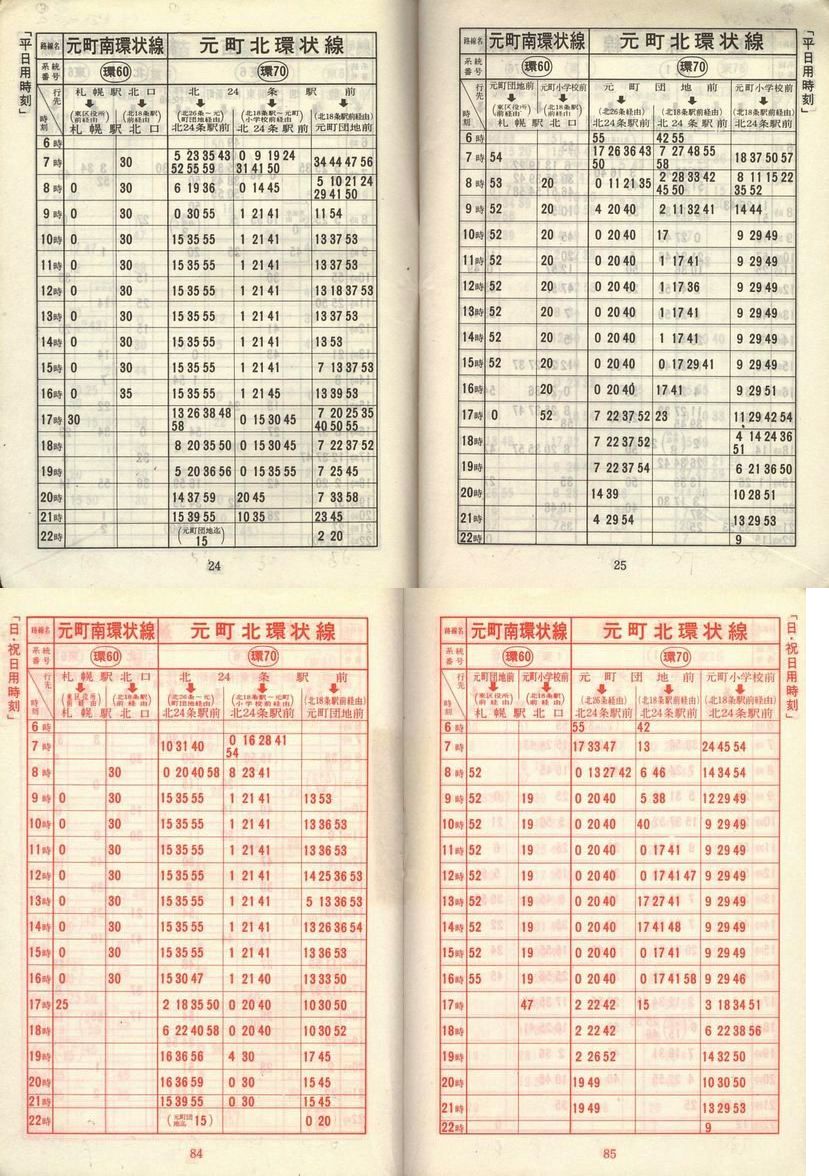 「平日用時刻」
路線名 元町南環状線 元町北環状線
系統番号 環60 環70
行先 札幌駅北口 北24条駅前
時刻 (東区役所前経由) 札幌駅 (北18条駅前経由) 北口 (北26条~元町団地経由) 北24条駅前 (北18条駅~元町小学校前経由) 北24条駅前 (北18条駅前経由) 元町団地前
6時
7時 30 5 23 35 43 0 9 19 24 34 44 47 56
52 55 59 31 41 50
8時 0 30 6 19 36 0 14 45 5 10 21 24
29 41 50
9時 0 30 0 30 55 1 21 41 11 54
10時 0 30 15 35 55 1 21 41 13 37 53
11時 0 30 15 35 55 1 21 41 13 37 53
12時 0 30 15 35 55 1 21 41 13 18 37 53
13時 0 30 15 35 55 1 21 41 13 37 53
14時 0 30 15 35 55 1 21 41 13 53
15時 0 30 15 35 55 1 21 41 7 13 37 53
16時 0 35 15 35 55 1 21 45 13 39 53
17時 30 13 26 38 48 0 15 30 45 7 20 25 35
58 40 50 55
18時 8 20 35 50 0 15 30 45 7 22 37 52
19時 5 20 36 56 0 15 35 55 7 25 45
20時 14 37 59 20 45 7 33 58
21時 15 39 55 10 35 23 45
22時 (元町団地迄) 15 2 20
24
「平日用時刻」
路線名 元町南環状線 元町北環状線
系統番号 環60 環70
行先 元町団地前 元町小学校前 元町団地前 元町小学校前
時刻 (東区役所前経由) 札幌駅 (北18条駅前経由) 北口 (北26条経由) 北24条駅前 (北18条駅前経由) 北24条駅前 (北18条駅前経由) 北24条駅前
6時 55 42 55
7時 54 17 26 36 43 7 27 48 55 18 37 50 57
50 58
8時 53 20 0 11 21 35 2 28 33 42 8 11 15 22
45 50 35 52
9時 52 20 4 20 40 2 11 32 41 14 44
10時 52 20 0 20 40 17 9 29 49
11時 52 20 0 20 40 1 17 41 9 29 49
12時 52 20 0 20 40 1 17 36 9 29 49
13時 52 20 0 20 40 1 17 41 9 29 49
14時 52 20 0 20 40 1 17 41 9 29 49
15時 52 20 0 20 40 0 17 29 41 9 29 49
16時 20 0 20 40 17 41 9 29 51
17時 0 52 7 22 37 52 23 11 29 42 54
18時 7 22 37 52 4 14 24 36
51
19時 7 22 37 54 6 21 36 50
20時 14 39 10 28 51
21時 4 29 54 13 29 53
22時 9
25
「日・祝日用時刻」
路線名 元町南環状線 元町北環状線
系統番号 環60 環70
行先 札幌駅北口 北24条駅前
時刻 (東区役所前経由) 札幌駅 (北18条駅前経由) 北口 (北26条~元町団地経由) 北24条駅前 (北18条駅~元町小学校前経由) 北24条駅前 (北18条駅前経由) 元町団地前
6時
7時 10 31 40 0 16 28 41
54
8時 30 0 20 40 58 8 23 41
9時 0 30 15 35 55 1 21 41 13 53
10時 0 30 15 35 55 1 21 41 13 36 53
11時 0 30 15 35 55 1 21 41 13 36 53
12時 0 30 15 35 55 1 21 41 14 25 36 53
13時 0 30 15 35 55 1 21 41 5 13 36 53
14時 0 30 15 35 55 1 21 41 13 26 36 54
15時 0 30 15 35 55 1 21 41 13 36 53
16時 0 30 15 30 47 1 21 40 13 33 50
17時 25 2 18 35 50 0 20 40 10 30 50
18時 6 22 40 58 0 20 40 10 30 52
19時 16 36 56 4 30 17 45
20時 16 36 59 0 30 15 45
21時 15 39 55 0 30 15 45
22時 (元町団地迄 15) 0 20
84
「日・祝日用時刻」
路線名 元町南環状線 元町北環状線
系統番号 環60 環70
行先 元町団地前 元町小学校前 元町団地前 元町小学校前
時刻 (東区役所前経由) 札幌駅 (北18条駅前経由) 北口 (北26条経由) 北24条駅前 (北18条駅前経由) 北24条駅前 (北18条駅前経由) 北24条駅前
6時 55 42
7時 17 33 47 13 24 45 54
8時 52 0 13 27 42 6 46 14 34 54
9時 52 19 0 20 40 5 38 12 29 49
10時 52 19 0 20 40 40 9 29 49
11時 52 19 0 20 40 0 17 41 9 29 49
12時 52 19 0 20 40 0 17 41 47 9 29 49
13時 52 19 0 20 40 17 27 41 9 29 49
14時 52 19 0 20 40 17 41 48 9 29 49
15時 52 19 0 20 40 0 17 41 9 29 49
16時 55 19 0 20 40 0 17 41 58 9 29 46
17時 47 2 22 42 15 3 18 34 51
18時 2 22 42 6 22 38 56
19時 2 26 52 14 32 50
20時 19 49 10 30 50
21時 19 49 13 29 53
22時 9
85